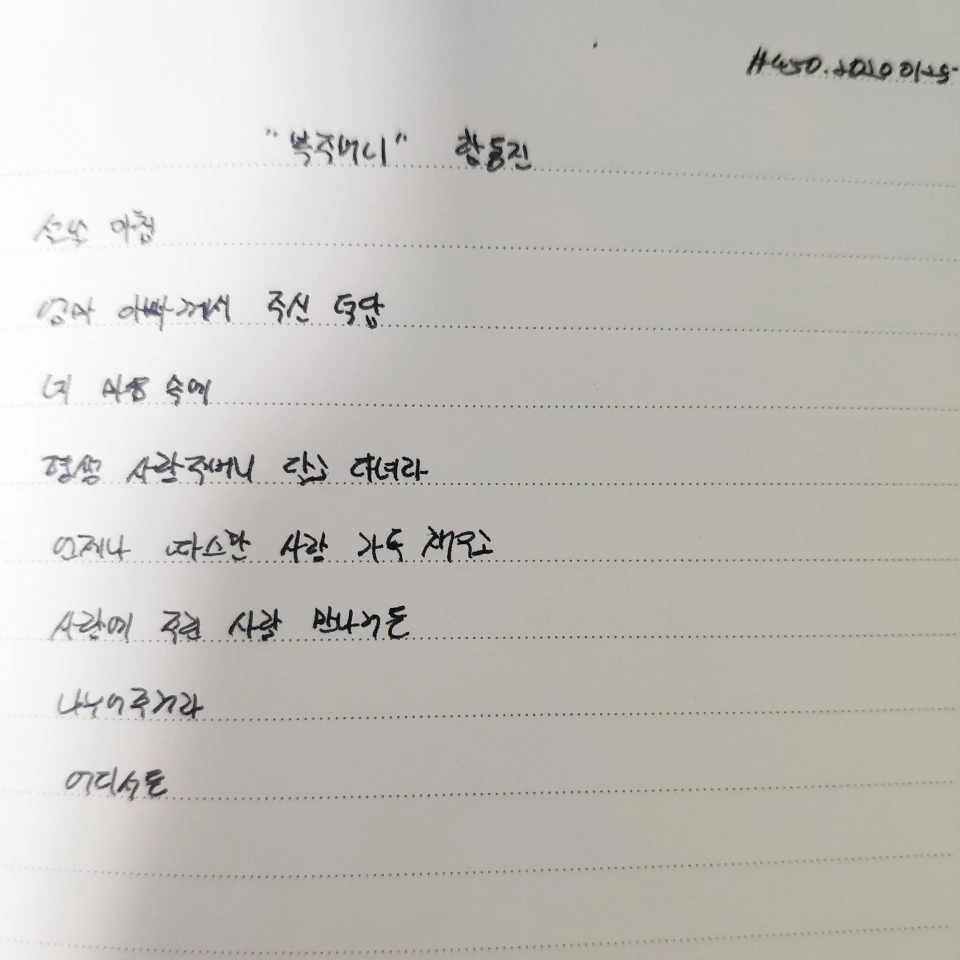 #450. 2020 0125.
"복주머니" 함동진
설날 아침
엄마 아빠께서 주신 덕담
너의 마음 속에
평생 사랑주머니 달고 다녀라
언제나 따스한 사랑 가득 채우고
사랑에 주린 사람 만나거든
나누어주거라
어디서든